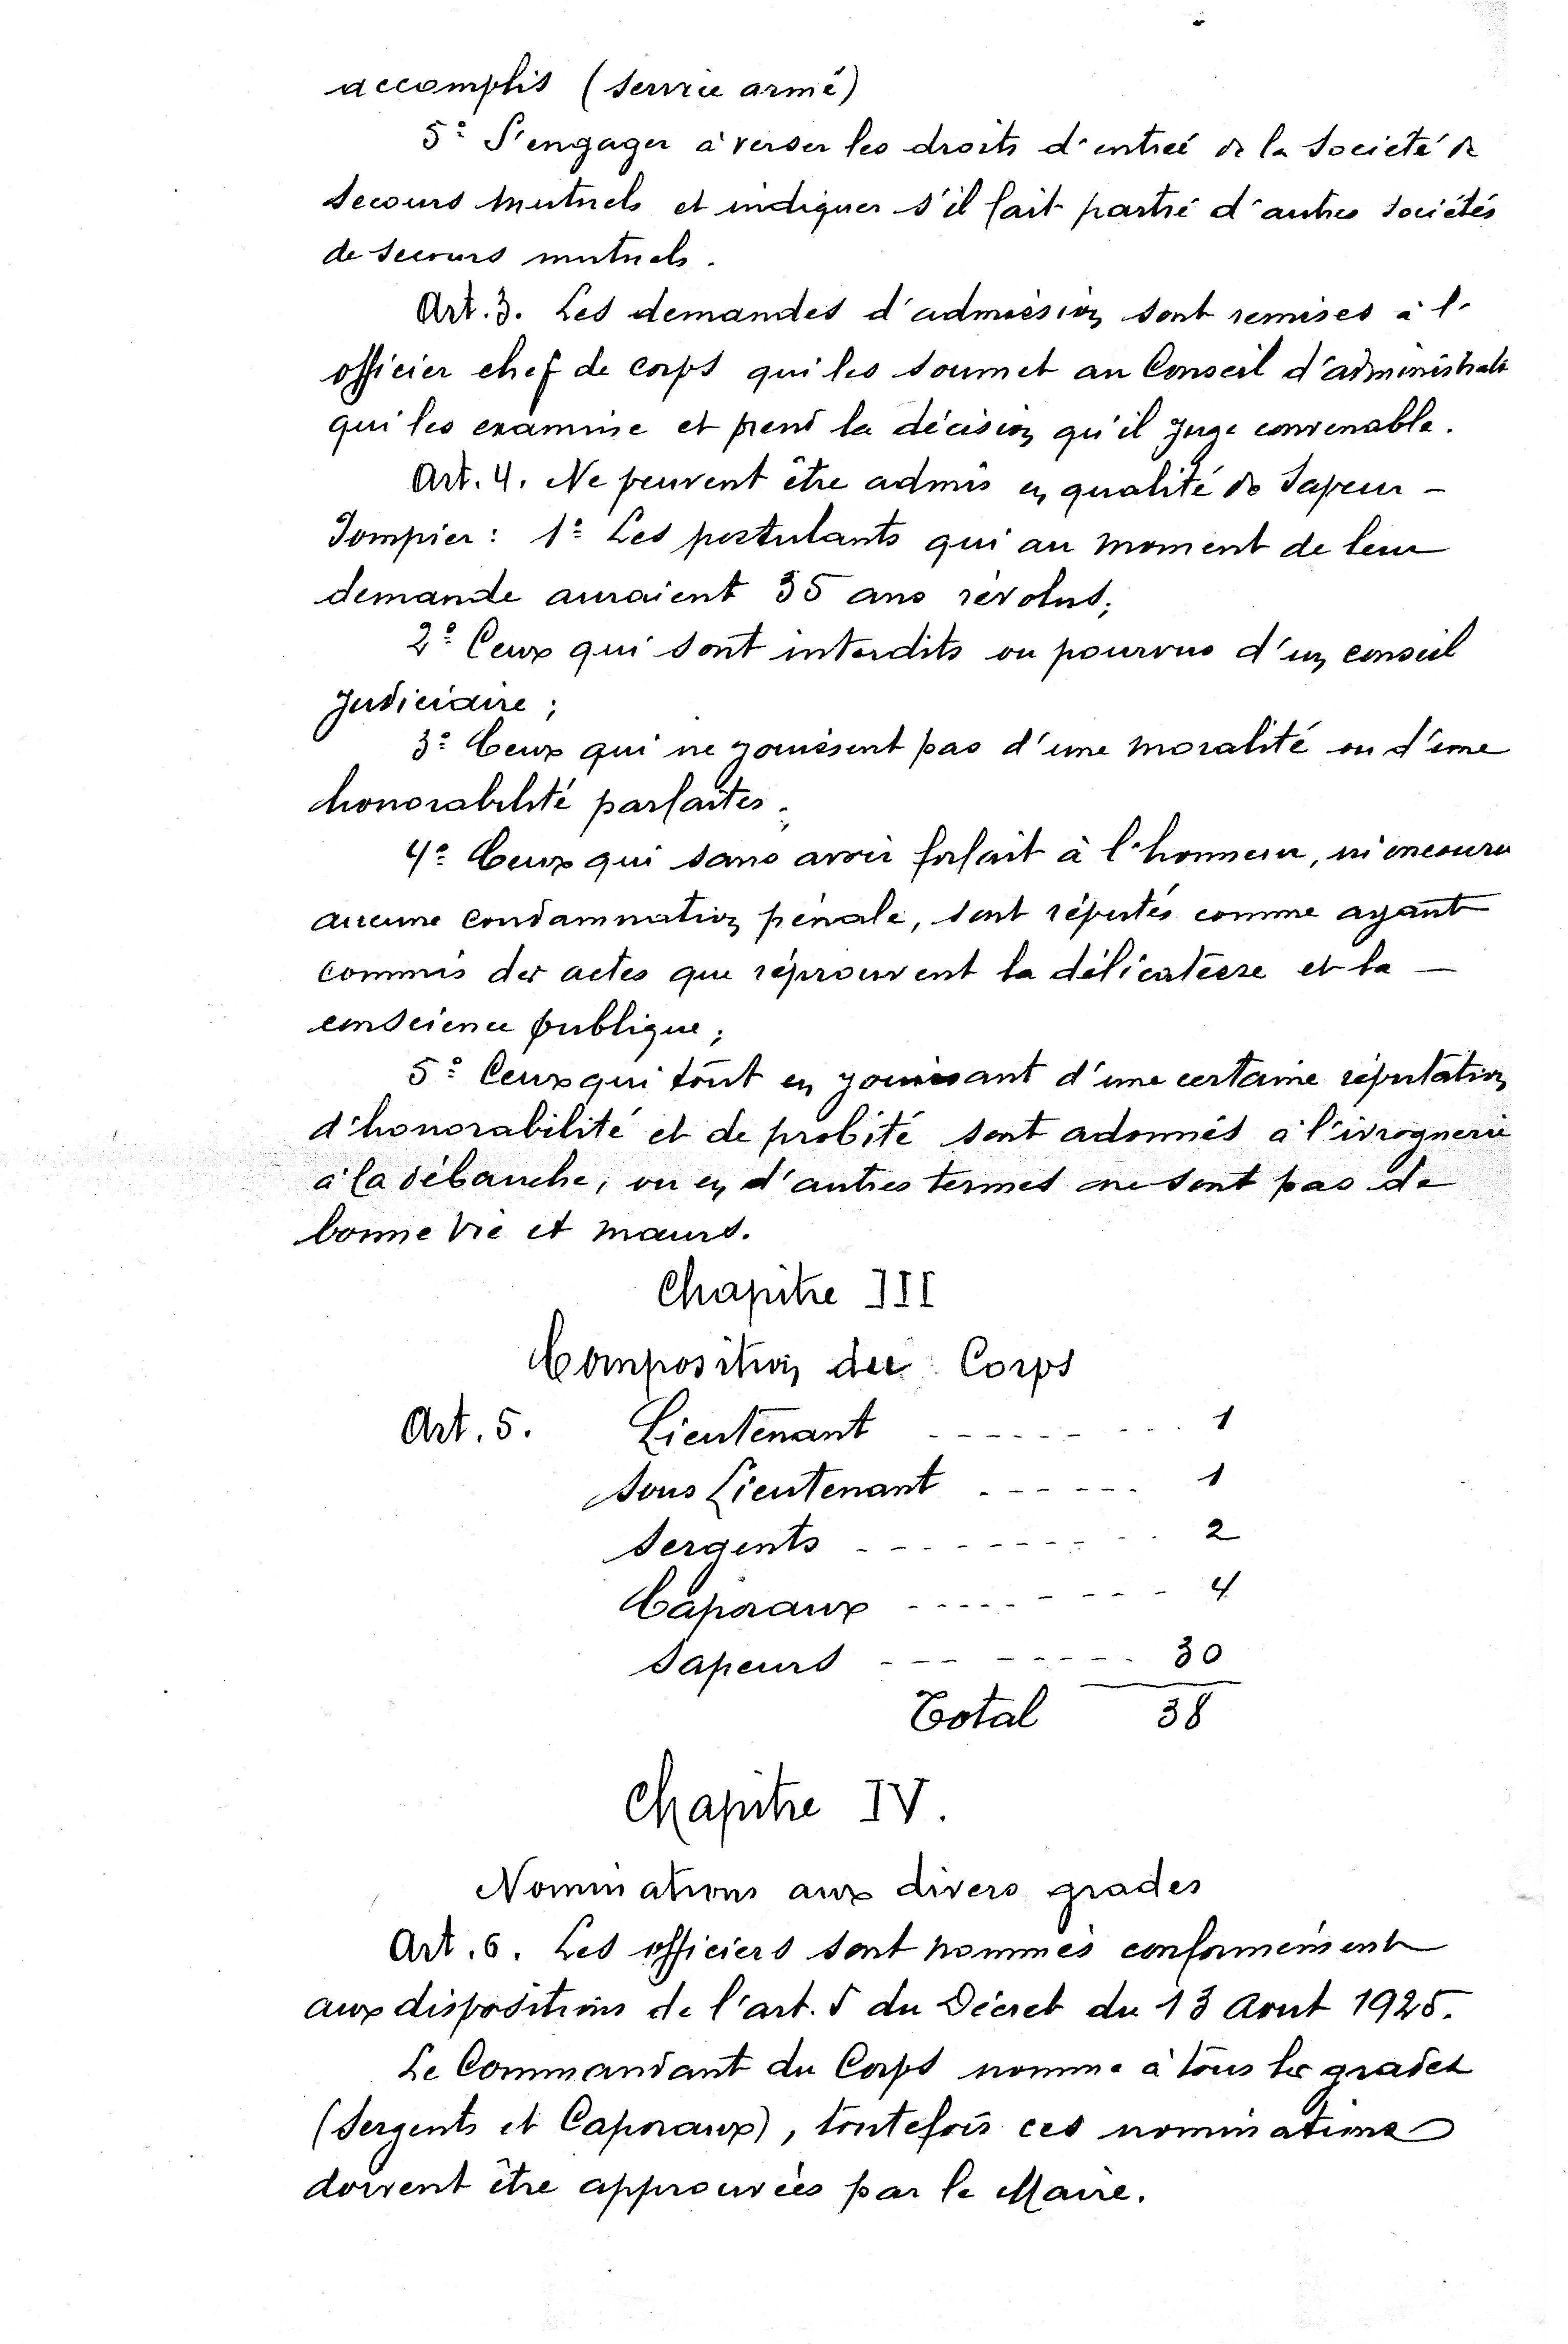 accomplis (Service armé)
5° S'engager à verser les droits d'entrée de la Société de
Secours Mutuels et indiquer s'il fait partie d'autres sociétés
de secours mutuels.
Art. 3. Les demandes d'admission sont remises à l'
officier chef de corps qui les soumet au Conseil d'administrati
qui les examine et prend la décision qu'il juge convenable.
Art. 4. Ne peuvent être admis en qualité de Sapeur -
Pompier : 1° Les postulants qui au moment de leur
demande auraient 35 ans révolus;
2° Ceux qui sont interdits ou pourvus d'un conseil
judiciaire ;
3° Ceux qui ne jouissent pas d'une moralité ou d'une
honorabilité parfaites ;
4° Ceux qui sans avoir forfait à l'honneur, ni encouru
aucune condamnation pénale, sont réputés comme ayant
commis des actes que réprouvent la délicatesse et la —
conscience publique ;
5° Ceux qui tout en jouissant d'une certaine réputation
d'honorabilité et de probité sont adonnés à l'ivrognerie
à la débauche, ou en d'autres termes ne sont pas de
bonne vie et mœurs.
Chapitre III
Composition du Corps
Art. 5. Lieutenant --------- 1
Sous Lieutenant ------ 1
Sergents --------- 2
Caporaux --------- 4
Sapeurs -------- 30
Total 38
Chapitre IV.
Nominations aux divers grades
Art. 6. Les officiers sont nommés conformément
aux dispositions de l'art. 5 du Décret du 13 Aout 1925.
Le Commandant du Corps nomme à tous les grades
(Sergents et Caporaux), toutefois ces nominations
doivent être approuvées par le Maire.